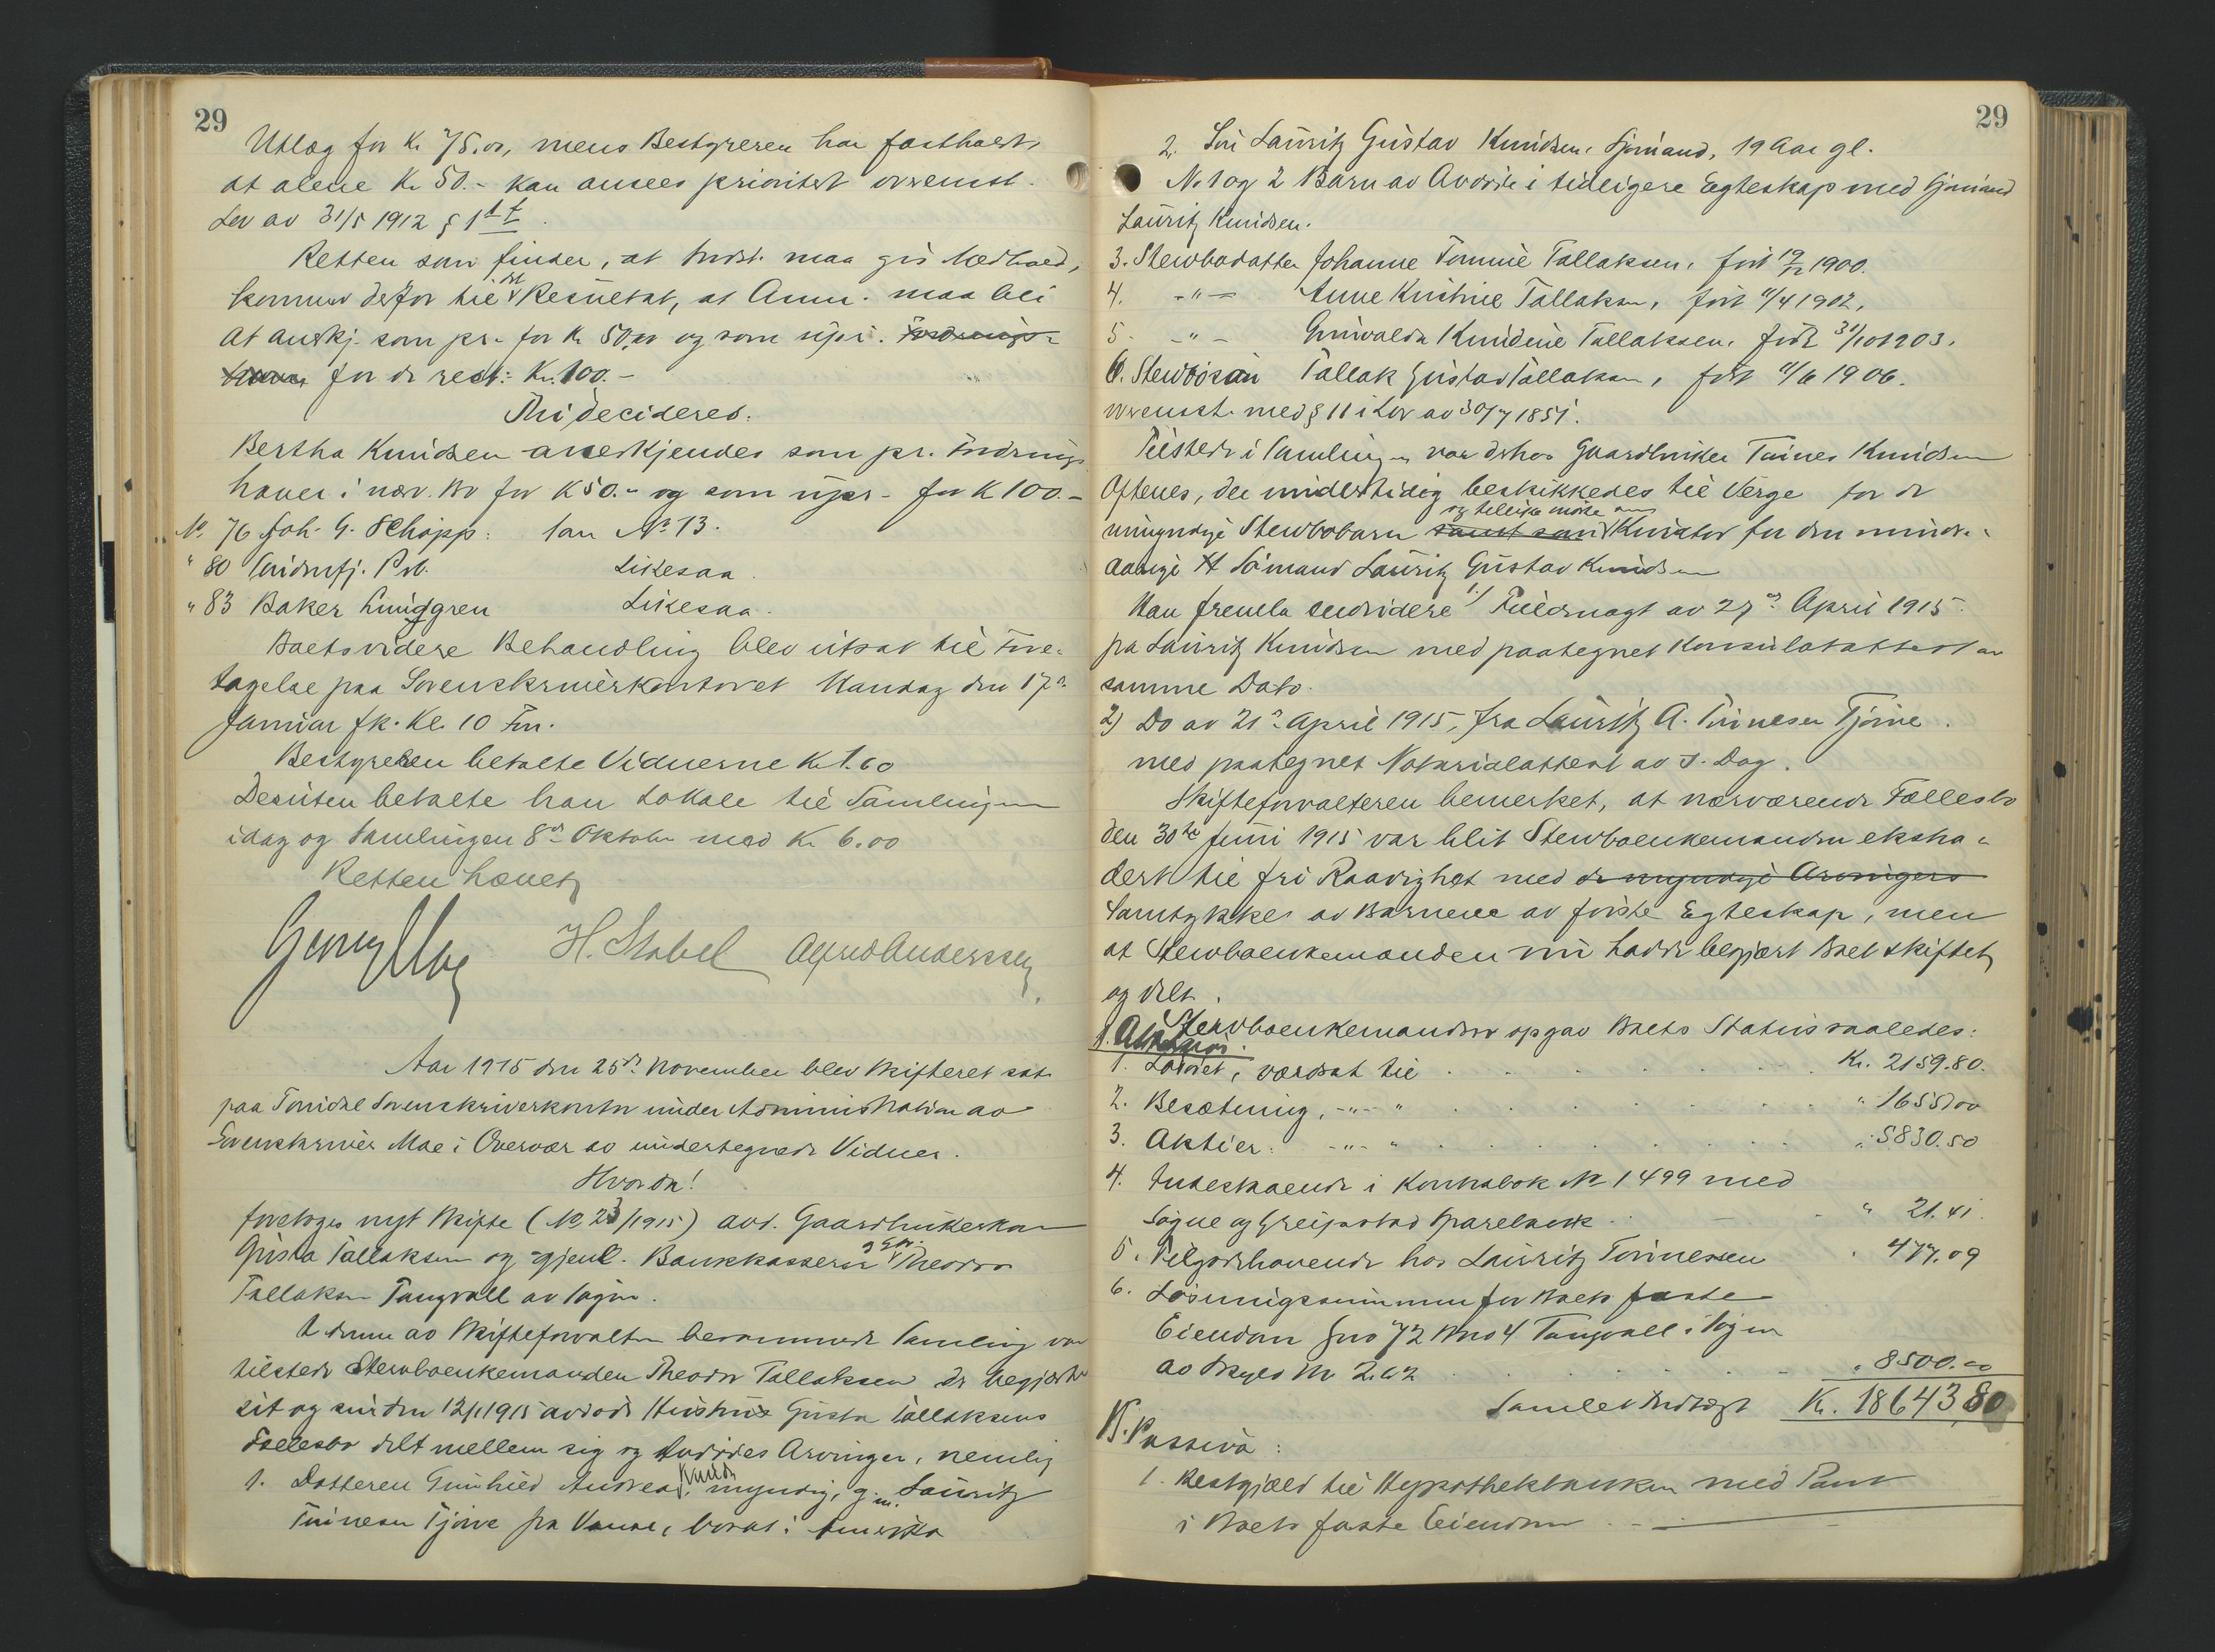 29
Utlæg for Kr 75.00, mens Bestyreren har fastholdt,
at alene Kr 50.- kan ansees prioritert overensst.
Lov av 31/5 1912 § 1
Retten som finder, at Indst. maa gis Medhold,
kommer derfor til det Resultat, at Anm. maa bli
at anerkj. som pr. for Kr 50,00 og som upr.
for de rest: Kr. 100.-
Thi decideres:
Bertha Knudsen anerkjendes som pr. Fordrings
haver i nærv. Bo for K 50.- og som upr. for K 100.-
No. 76 Joh. G. Schöpp: som No 13.
" 80 Likesaa.
" 83 Baker Lundgren Likesaa.
Boets videre Behandling blev utsat til Fore-
tagelse paa Sorenskriverkontoret Mandag den 17de
Januar fk. Kl. 10 Fm.
Bestyreren betalte Vidnerne Kr 1.60
Desuten betalte han Lokale til Samlingen
idag og Samlingen 8de Oktober med Kr 6.00
Retten hævet
H. Stabel Alfred Anderssen
Aar 1915 den 25de November blev Skifteret sat
paa Sorenskriverkontor under Administration av
Sorenskriver Moe i Overvær av undertegnede Vidner.
Hvorda!
foretoges nyt Skifte (No 23/1915) avd. Gaardbrukerkone
Gusta Tallaksen og gjenl. Bankkasserer og Gbr. Theodor
Tallaksen Tangvall av Søgne.
I denne av Skifteforvalteren berammede Samling var
tilstede Stervboenkemanden Theodor Tallaksen der begjærte
sit og sin den 12/1 1915 avdøde Hustru Gusta Tallaksens
Fællesbo delt mellem sig og Avdødes Arvinger, nemlig
1. Datteren Gunhild Andrea Knuds. myndig, g. m. Lauritz
Tønnesen Tjørve fra Vanse, bosat i Amerika
29
2. Søn Lauritz Gustav Knudsen, Sjømand, 19 Aar gl.
No 1 og 2 Barn av Avdøde i tidligere Egteskap med Sjømand
Lauritz Knudsen.
3. Stervbodatter Johanne Tomine Tallaksen, født 19/12 1900.
4. -"- Anne Kristine Tallaksen, født 4/4 1902,
5. -"- Tallaksen, født 31/10 1903.
6. Stervbosøn Tallak Gustav Tallaksen, født 4/6 1906.
overensst. med § 11 i Lov av 30/7 1851.
Tilstede i Samlingen var derhos Gaardbruker Tønnes Knudsen
Øftenes, der midlertidig beskikkedes til Verge for de
umyndige Stervbobarn samt som og tillike møtte som Kurator for den mindre-
aarige Sømand Lauritz Gustav Knudsen
Man fremla endvidere 1) Fuldmagt av 27de April 1915.
fra Lauritz Knudsen med paategnet Konsulatattest av
samme Dato.
2) Do av 21de April 1915, fra Lauritz A. Tønnesen Tjørve.
med paategnet Notarialattest av s. Dag.
Skifteforvalteren bemerket, at nærværende Fællesbo
den 30te Juni 1915 var blit Stervboenkemanden ekstra-
dert til fri Raadighet med de myndige Arvingers
Samtykke av Barnene av første Egteskap, men
at Stervboenkemanden nu hadde begjært Boet skiftet
og delt.
Stervboenkemanden opgav Boets Status saaledes:
A. Aktiva.
1. Løsøret, værdsat til Kr. 2159.80.
2. Besætning, -"- " " 1655.00
3. Aktier: -"- " " 5830.50
4. Indestaaende i Kontrabok No 1499 med
Søgne og Greipstad Sparebank " 21.41
5. Tilgodehavende hos Lauritz Tønnessen " 477.09
6. Løsningssummen for Boets faste
Eiendom Gno 72 Bno 4 Tangvall i Søgne
av Skyld Mk 2.62 " 8500.00
Samlet Indtægt Kr. 18643,80
B. Passiva:
1. Restgjæld til Hypothekbanken med Pant
i Boets faste Eiendom